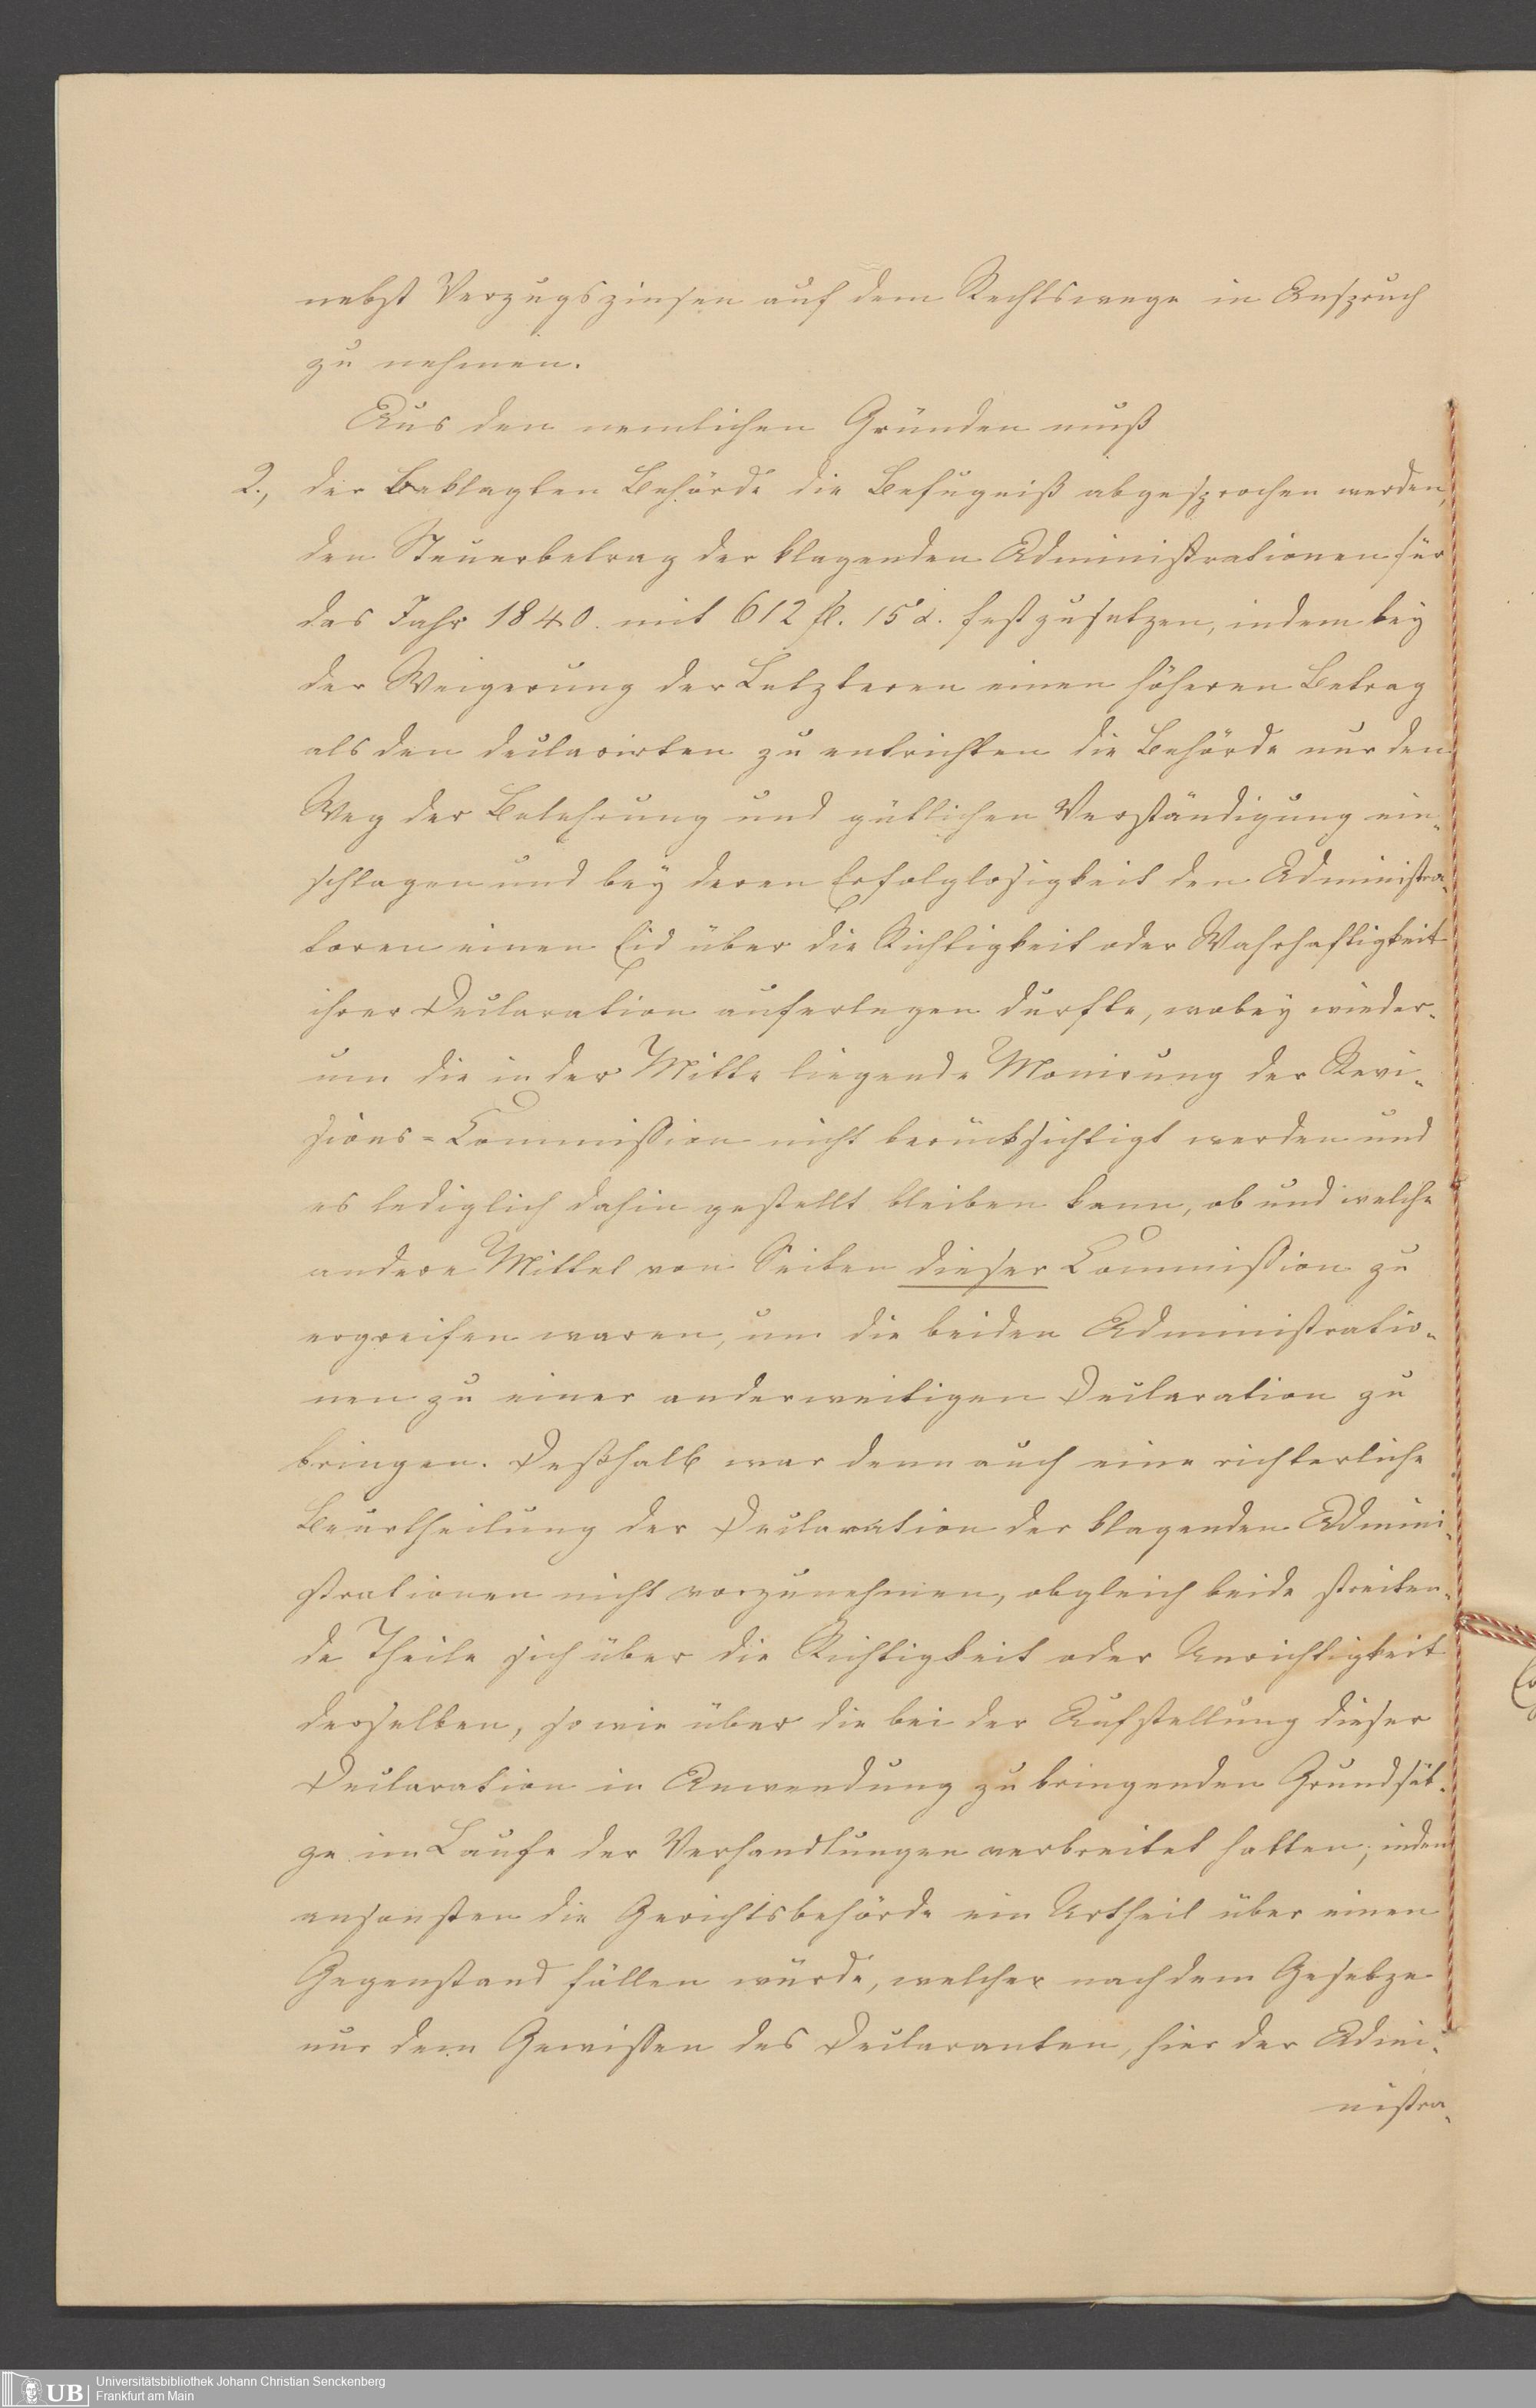 nebst Verzugszinsen auf dem Rechtswege in Anspruch
zu nehmen.
Aus den nemlichen Gründen muß
2., der beklagten Behörde die Befugniß abgesprochen werden,
den Steuerbetrag der klagenden Administrationen für
das Jahr 1840. mit 612 fl. 15 x. festzusetzen, indem bey
der Weigerung der Letzteren einen höheren Betrag
als den declarirten zu entrichten die Behörde nur den
Weg der Belehrung und gütlichen Verständigung ein-
schlagen und bey deren Erfolglosigkeit den Administra-
toren einen Eid über die Richtigkeit oder Wahrhaftigkeit
ihrer Declaration auferlegen durfte, wobey wieder-
um die in der Mitte liegende Monirung der Revi-
sions-Commission nicht berücksichtigt werden und
es lediglich dahin gestellt bleiben kann, ob und welche
andere Mittel von Seiten dieser Commission zu
ergreifen waren, um die beiden Administratio-
nen zu einer anderweitigen Declaration zu
bringen. Deßhalb war denn auch eine richterliche
Beurtheilung der Declaration der klagenden Admini-
strationen nicht vorzunehmen, obgleich beide streiten-
de Theile sich über die Richtigkeit oder Unrichtigkeit
derselben, sowie über die bei der Aufstellung dieser
Declaration in Anwendung zu bringenden Grundsät-
ze im Laufe der Verhandlungen verbreitet hatten; indem
ansonsten die Gerichtsbehörde ein Urtheil über einen
Gegenstand fällen würde, welcher nach dem Gesetze
nur dem Gewissen des Declaranten, hier der Admi-
nistra-
Universitätsbibliothek Johann Christian Senckenberg
Frankfurt am Main
UB